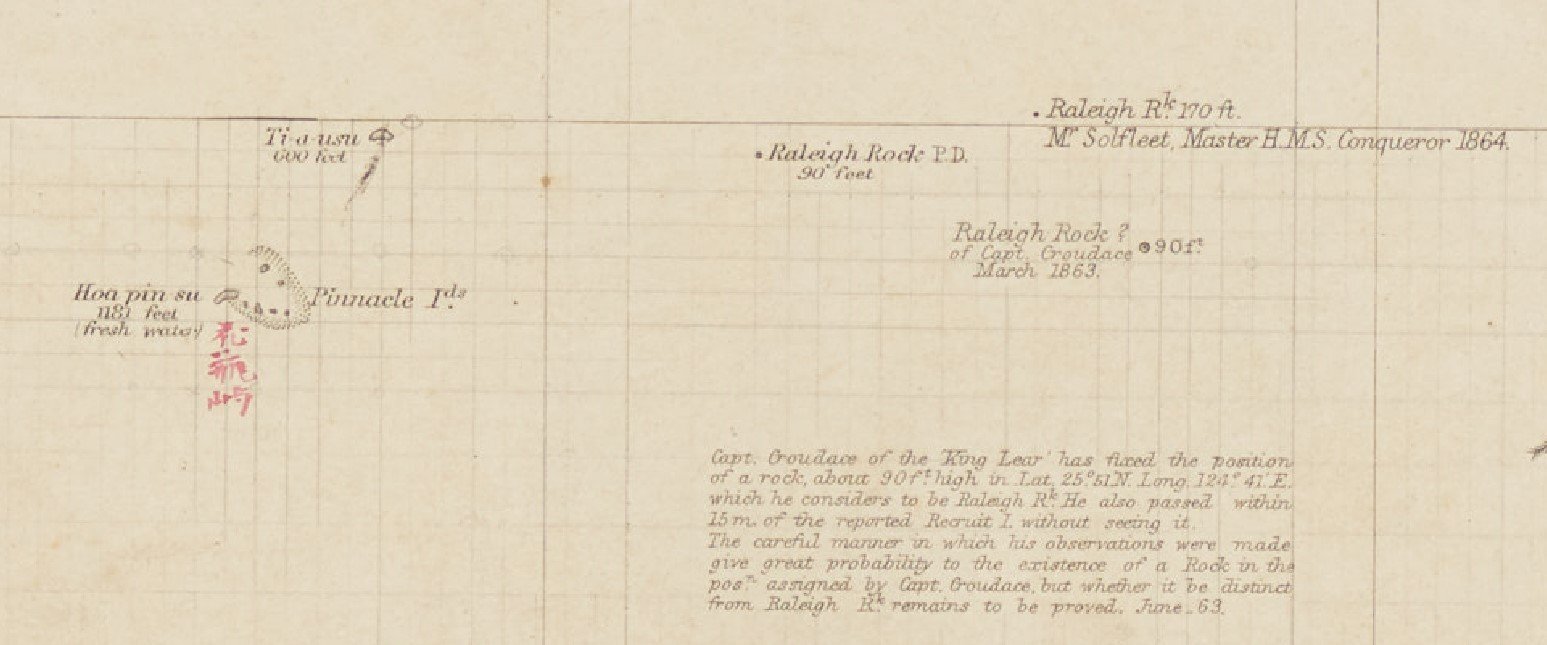 Raleigh Rk. 170 ft.
Mr Solfleet, Master H.M.S. Conqueror 1864.
Ti-a-usu
600 feet
Raleigh Rock P.D.
90 feet
Raleigh Rock ?
of Capt. Croudace
March 1863.
90ft.
Hoa pin su
1181 feet
(fresh water)
Pinnacle Ids.
花
瓶
嶼
Capt. Croudace of the 'King Lear' has fixed the position
of a rock, about 90ft. high in Lat. 25°51'N. Long. 124° 41' E.
which he considers to be Raleigh Rk. He also passed within
15 m. of the reported Recruit I. without seeing it.
The careful manner in which his observations were made
give great probability to the existence of a Rock in the
posn. assigned by Capt. Croudace, but whether it be distinct
from Raleigh Rk. remains to be proved. June _ 63.